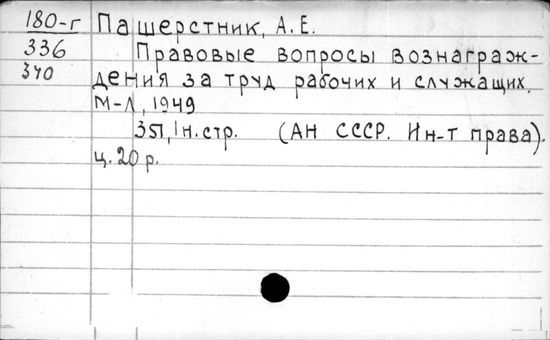 180-г Пашерстник, А.Е.
336 Правовые вопросы вознаграж-
340 дения за труд рабочих и служащих.
М-Л, 1949
351, 1 н. стр. (АН СССР. Ин-т права).
ц. 20 р.